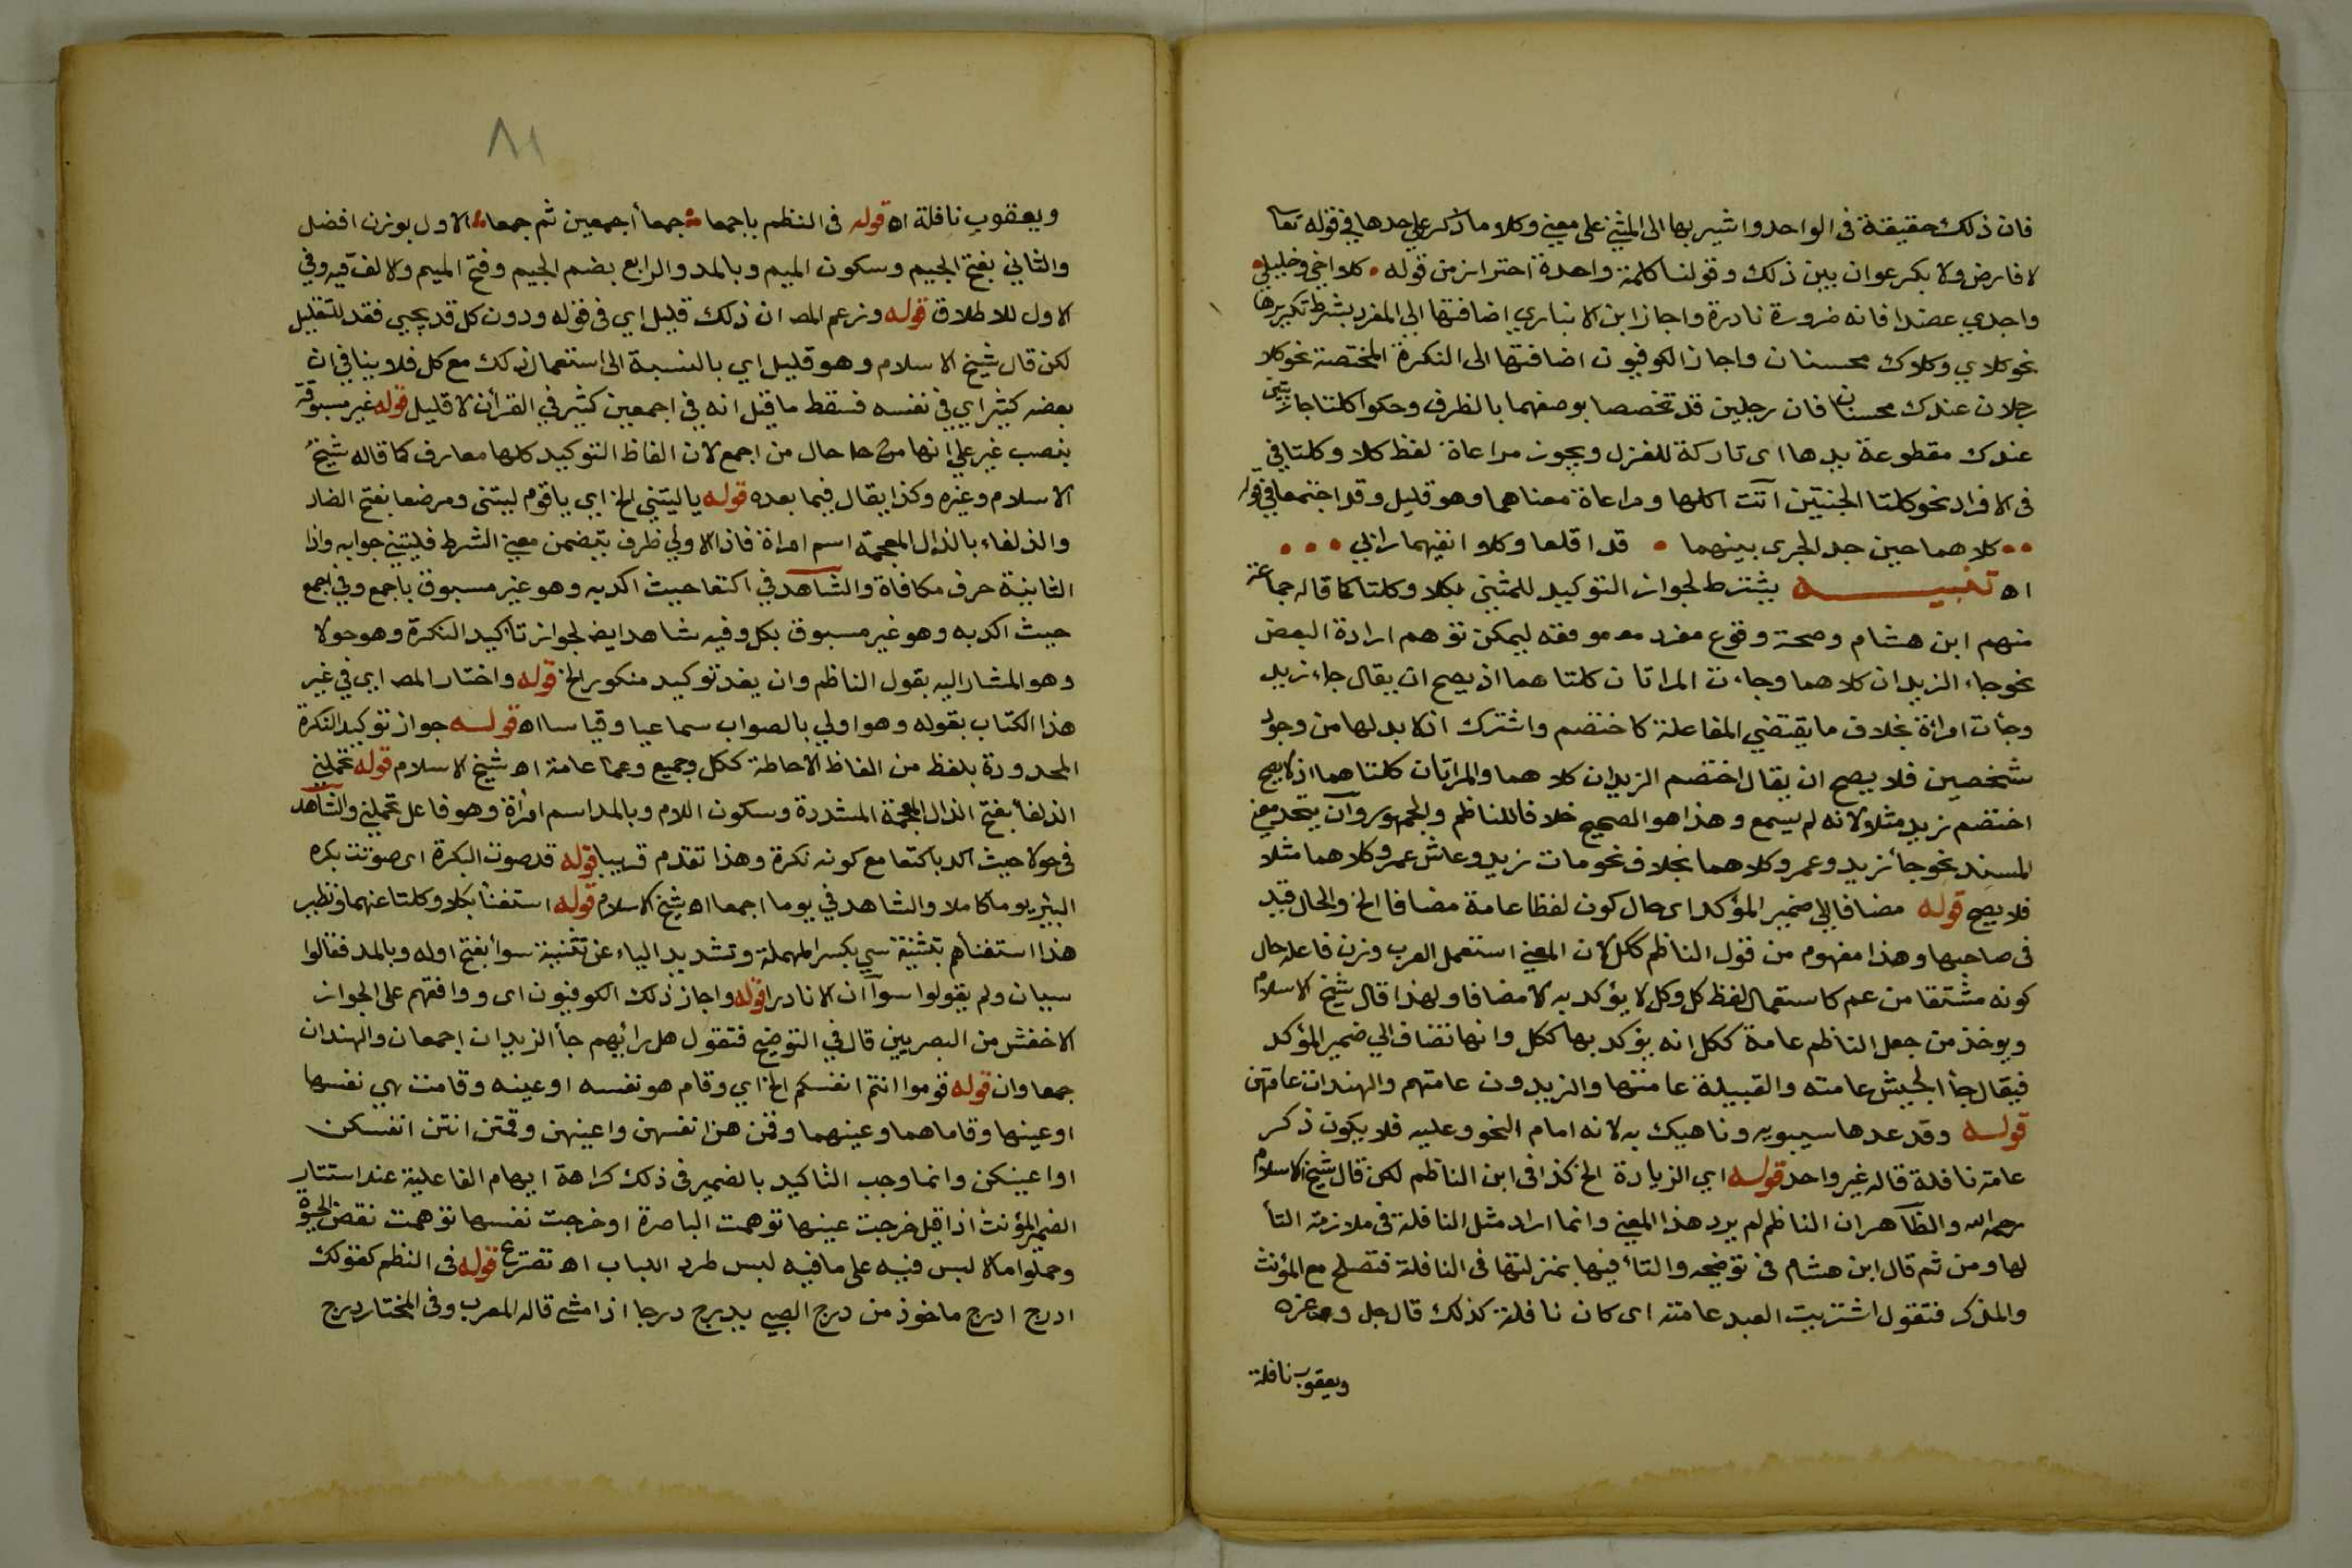 فان ذلك حقيقة فى الواحد واشير بها الى المثنى على معنى وكلا وما ذكر على حدها في قوله تعا
لا فارض ولا بكر عوان بين ذلك وقولنا كلمة واحدة احتراز من قوله • كلا اخي وخليلي •
واجدي عضدا فانه ضرورة نادرة واجاز ابن الانباري اضافتها الى المفرد بشرط تكريرها
نحو كلاي وكلاك محسنان واجاز الكوفيون اضافتها الى النكرة المختصة نحو كلا
رجلان عندك محسنان فان رجلين قد تخصصا بوصفهما بالظرف وحكوا كلتا جاريتين
عندك مقطوعة يدها اى تاركة للغزل ويجوز مراعاة لفظ كلا وكلتا في
فى الافراد نحو كلتا الجنتين آتت اكلها ومراعاة معناهما وهو قليل وقد اجتمعا في قوله
•• كلاهما حين جد الجرى بينهما • قد اقلعا وكلا انفيهما رابي •••
اه تنبيه يشترط لجواز التوكيد للمثنى بكلا وكلتا كما قاله جماعة
منهم ابن هشام وصحة وقوع مفرد مع موقعه ليمكن توهم ارادة البعض
نحو جاء الزيدان كلاهما وجاءت المراتان كلتاهما اذ يصح ان يقال جاء زيد
وجأت امرأة بخلاف ما يقتضي المفاعلة كاختصم واشترك اذ لا بد لها من وجود
شخصين فلا يصح ان يقال اختصم الزيدان كلاهما والمراتان كلتاهما اذ لا يصح
اختصم زيد مثلا ولانه لم يسمع وهذا هو الصحيح خلافا للناظم والجمهور وان يتحد معنى
المسند نحو جأ زيد وعمرو كلاهما بخلاف نحو مات زيد وعاش عمرو كلاهما مثلا
فلا يصح قوله مضافا الى ضمير المؤكد اى حال كون لفظ عامة مضافا الخ والحال قيد
فى صاحبها وهذا مفهوم من قول الناظم ككل لان المعنى استعمل العرب وزن فاعلة حال
كونه مشتقا من عم كاستعمال لفظ كل وكل لا يؤكد به الا مضافا ولهذا قال شيخ الاسلام
ويوخذ من جعل الناظم عامة ككل انه يؤكد بها ككل وانها تضاف الي ضمير المؤكد
فيقال جأ الجيش عامته والقبيلة عامتها والزيدون عامتهم والهندات عامتهن
قوله وقد عدها سيبويه وناهيك به لانه امام النحو وعليه فلا يكون ذكر
عامة نافلة قاله غير واحد قوله اي الزيادة الخ كذا فى ابن الناظم لكن قال شيخ الاسلام
رحمه الله والظاهر ان الناظم لم يرد هذا المعنى وانما اراد مثل النافلة فى ملازمة التأ
لها ومن ثم قال ابن هشام فى توضيحه والتأ فيها بمنزلتها فى النافلة فتصلح مع المؤنث
والمذكر فتقول اشتريت العبد عامته اى كان نافلة كذلك قال جل وعز
ويعقوب نافلة
٨١
ويعقوب نافلة اه قوله فى النظم باجمعا جمعأ اجمعين ثم جمعا الاول بوزن افضل
والثاني بفتح الجيم وسكون الميم وبالمد والرابع بضم الجيم وفتح الميم والالف فيه وفي
الاول للاطلاق قوله وزعم المص ان ذلك قليل اي فى قوله ودون كل قد يجي فقد للتقليل
لكن قال شيخ الاسلام وهو قليل اي بالنسبة الى استعمال ذلك مع كل فلا ينافي ان
بعضه كثير اي في نفسه فسقط ما قيل انه في اجمعين كثير في القرأن لا قليل قوله غير مسبوقة
بنصب غير على انها حال من اجمع لان الفاظ التوكيد كلها معارف كما قاله شيخ
الاسلام وغيره وكذا يقال فيما بعده قوله يا ليتني الخ اي يا قوم ليتنى ومرضعا بفتح الضاد
والذلفاء بالذال المعجمة اسم امراة فاذا الاولي ظرف يتضمن معنى الشرط فليتني جوابه واذا
الثانية حرف مكافاة والشاهد في اكتعا حيث اكد به وهو غير مسبوق باجمع وفي اجمع
حيث اكد به وهو غير مسبوق بكل وفيه شاهد ايضا لجواز تأكيد النكرة وهو حولا
وهو المشار اليه بقول الناظم وان يفد توكيد منكور الخ قوله واختار المص اي في غير
هذا الكتاب بقوله وهو اولي بالصواب سماعيا وقياسا اه قوله جواز توكيد النكرة
المحدودة بلفظ من الفاظ الاحاطة ككل وجميع وعما عامة اه شيخ الاسلام قوله تحملني
الذلفأ بفتح الذال المعجمة المشددة وسكون اللام وبالمد اسم امرأة وهو فاعل تحملني والشاهد
في حولا حيث اكد باكتعا مع كونه نكرة وهذا تقدم قريبا قوله قد صوت البكرة اى صوتت بكره
البئر يوما كاملا والشاهد في يوما اجمعا اه شيخ الاسلام قوله استغنأ بكلا وكلتا عنهما ونظير
هذا استغنأهم بتثنية سي بكسر المهملة وتشديد الياء عن تثنية سوأ بفتح اوله وبالمد فقالوا
سيان ولم يقولوا سوآان الا نادرا قوله واجاز ذلك الكوفيون اى ووافقهم على الجواز
الاخفش من البصريين قال في التوضيح فتقول هل رايهم جأ الزيدان اجمعان والهندان
جمعاوان قوله قوموا انتم انفسكم الخ اي وقام هو نفسه او عينه وقامت هي نفسها
او عينها وقاما هما وعينهما وقمن هن انفسهن واعينهن وقمتن انتن انفسكن
او اعينكن وانما وجب التاكيد بالضمير فى ذلك كراهة ايهام الفاعلية عند استتار
الضمير المؤنث اذا قيل خرجت عينها توهمت الباصرة او خرجت نفسها توهمت نقض الحيوة
وحملوا مالا لبس فيه على ما فيه لبس طرد الباب اه تصريح قوله فى النظم كقولك
ادرج ادرج ماخوذ من درج الصبي يدرج درجا اذا مشى قاله المعرب وفى المختار درج